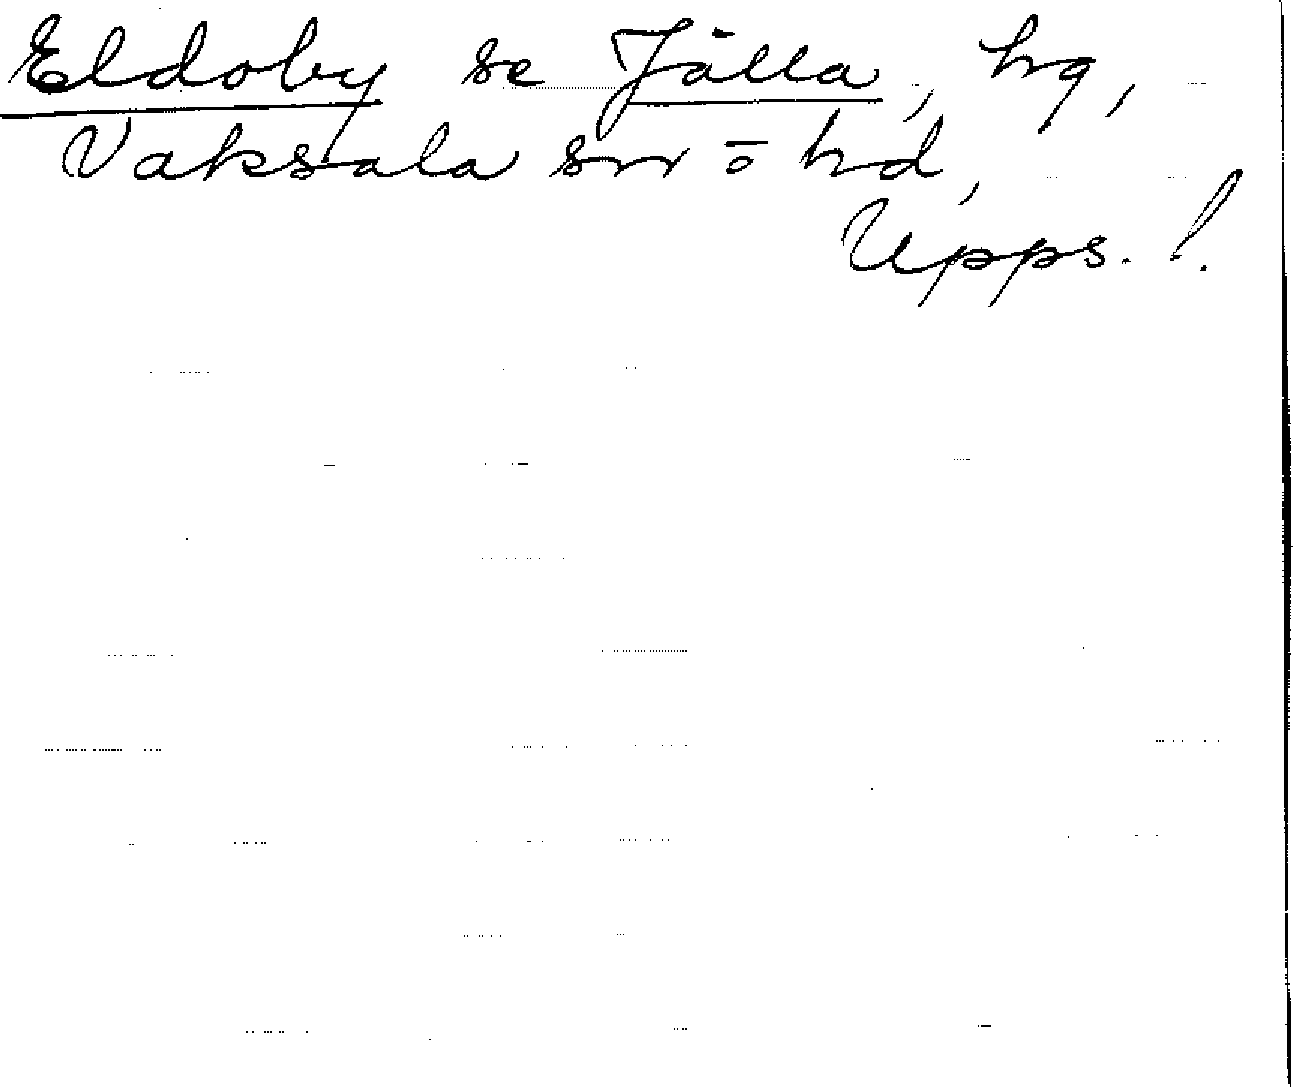 Eldoby se Jälla, hg,
Vaksala sn o hd,
Upps. l.